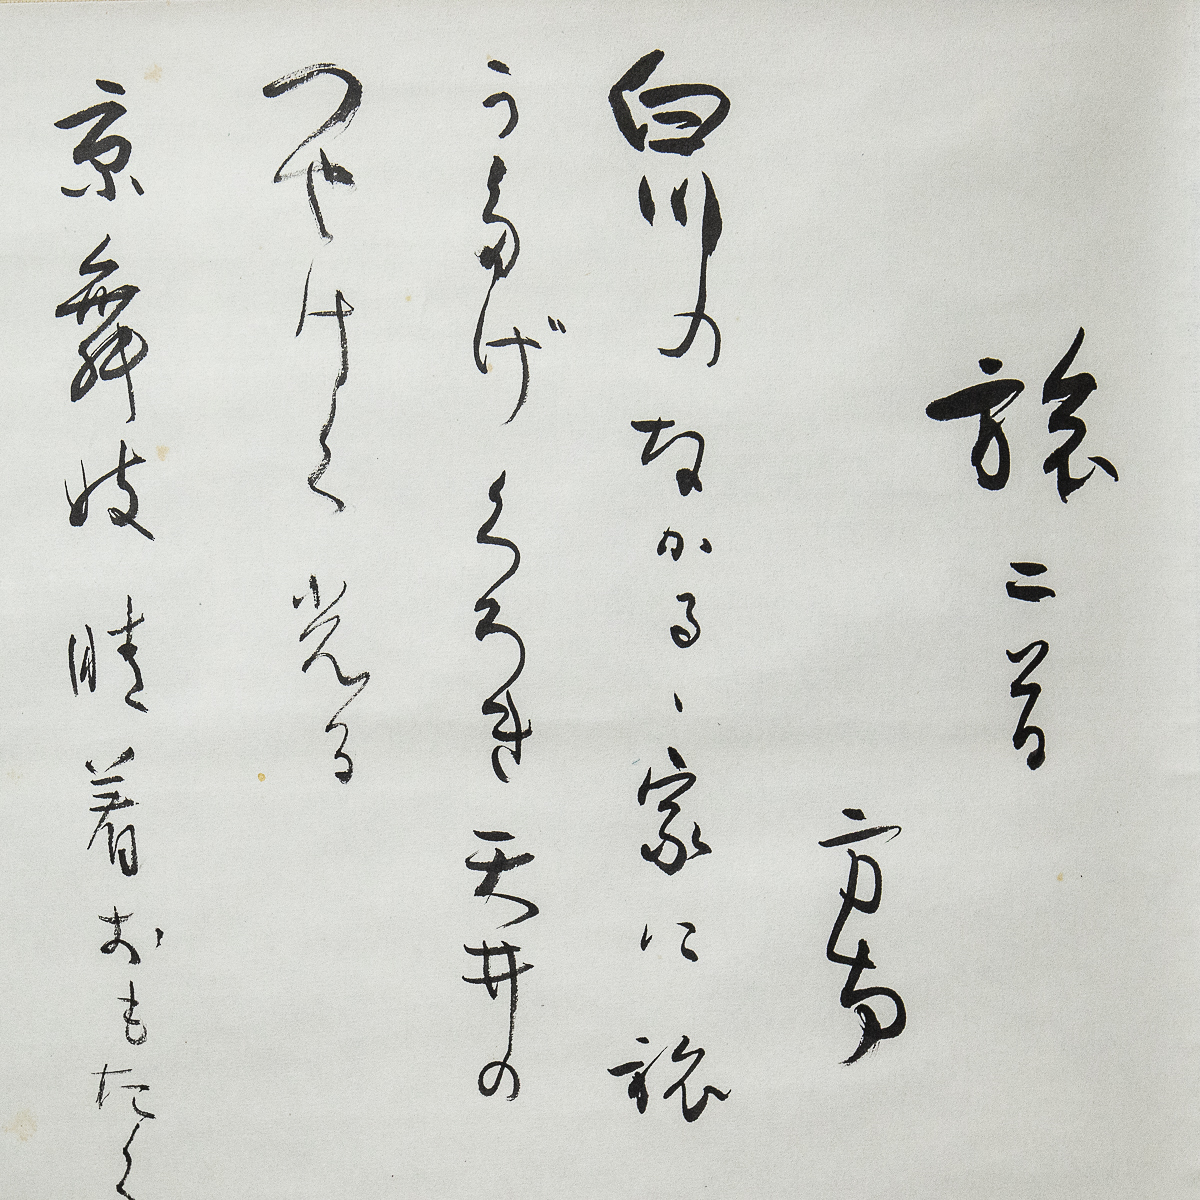 旅二首
方南
白川のながるゝ家に旅
うたげくろき天井の
つやけく光る
京舞妓晴着おもたく